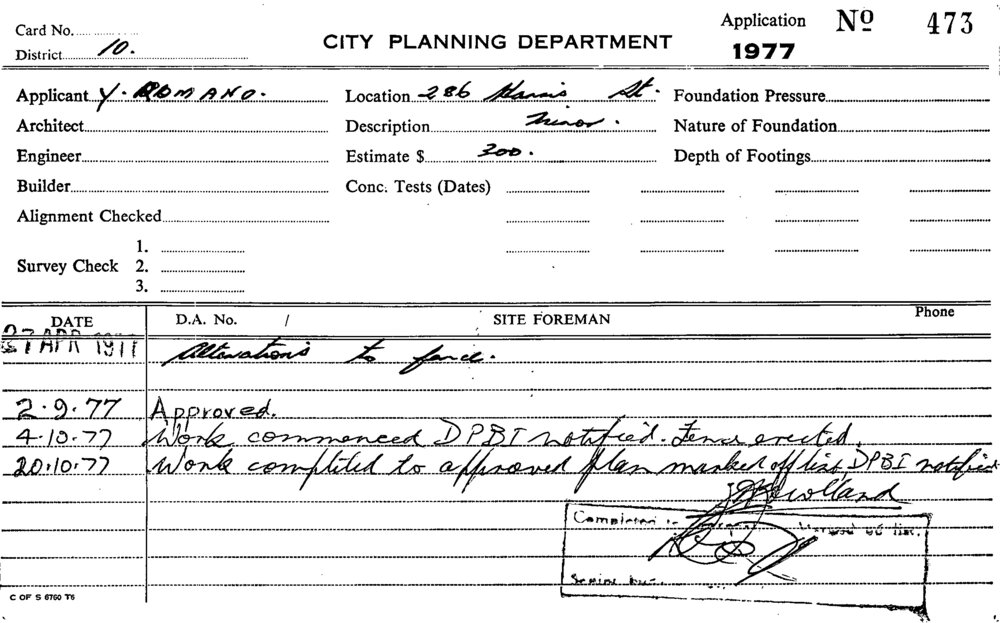 Card No.
Application Nº 473
District 10.
CITY PLANNING DEPARTMENT
1977
Applicant Y. ROMANO.
Location 286 Harris St.
Foundation Pressure
Architect
Description Minor.
Nature of Foundation
Engineer
Estimate $ 300.
Depth of Footings
Builder
Conc. Tests (Dates)
Alignment Checked
Survey Check
1.
2.
3.
DATE
D.A. No. /
SITE FOREMAN
Phone
27 APR 1977
Alterations to fence.
2.9.77 Approved.
4.10.77 Work commenced DPBI notified. Fence erected.
20.10.77 Work completed to approved plan marked off list, DPBI notified
Completed to
off list.
Senior
C OF S 6760 T6